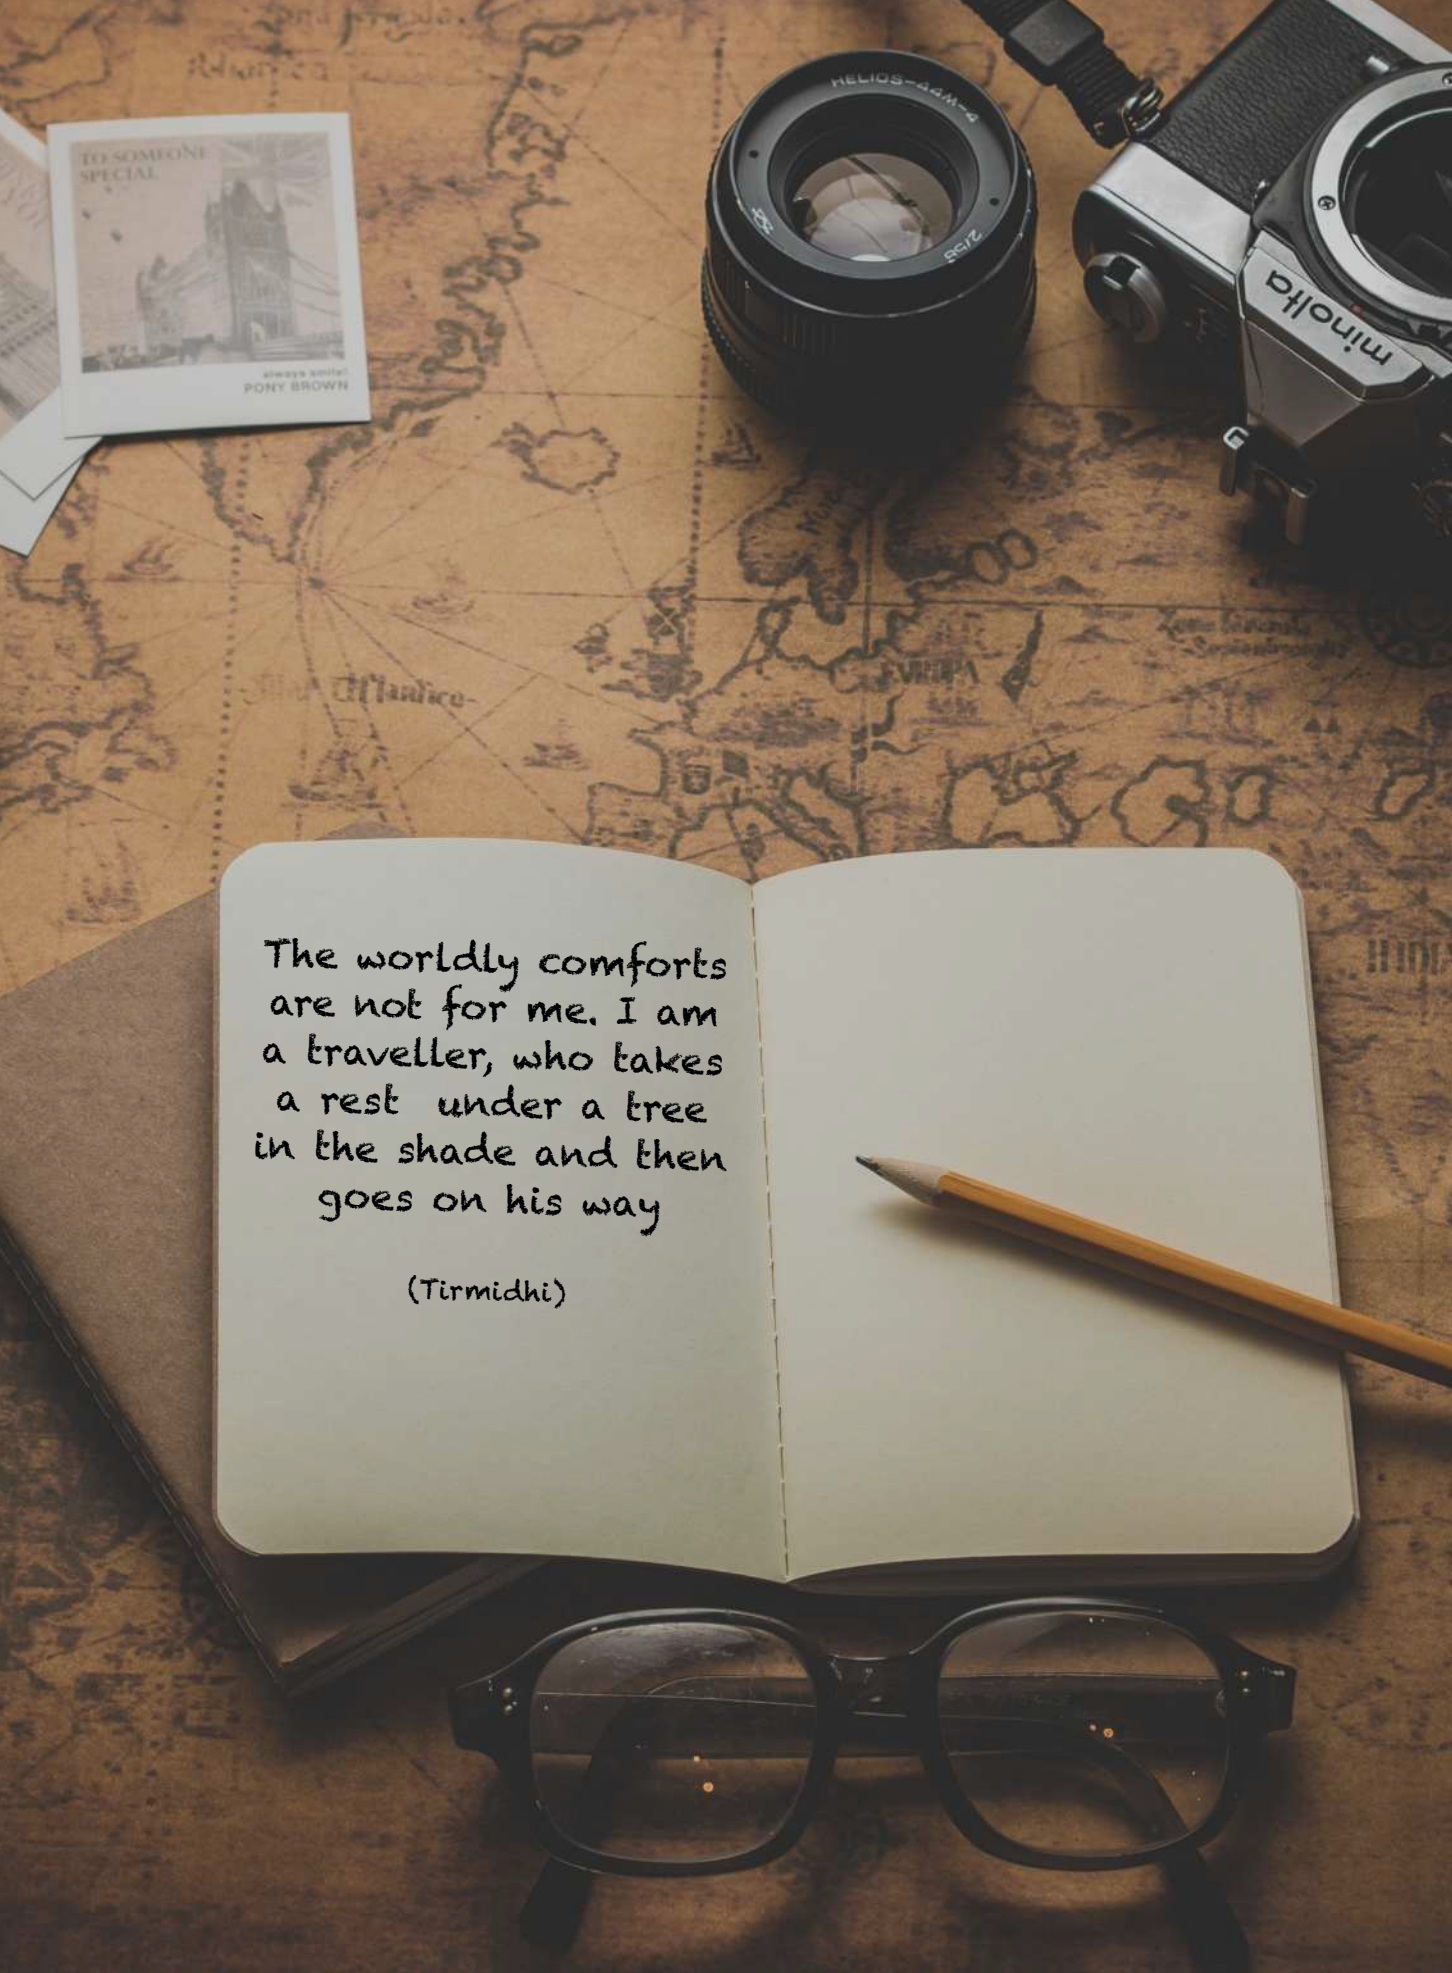 TO SOMEONE
SPECIAL
always smile!
PONY BROWN
HELIOS-44M-4
2/58
minolta
EVROPA
The worldly comforts
are not for me. I am
a traveller, who takes
a rest under a tree
in the shade and then
goes on his way
(Tirmidhi)